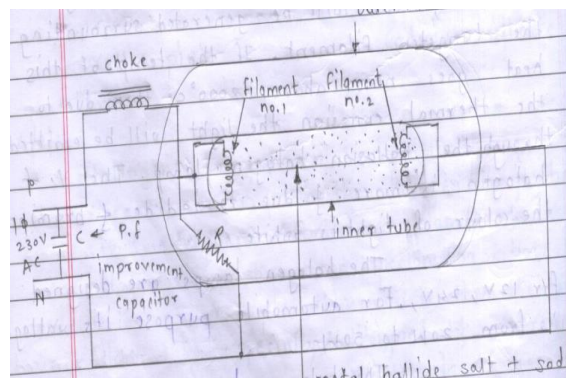 choke
filament
no.1
filament
no.2
P
1ϕ
230V
AC
N
C ← P.f
improvement
capacitor
R
inner tube
metal hallide salt + sod